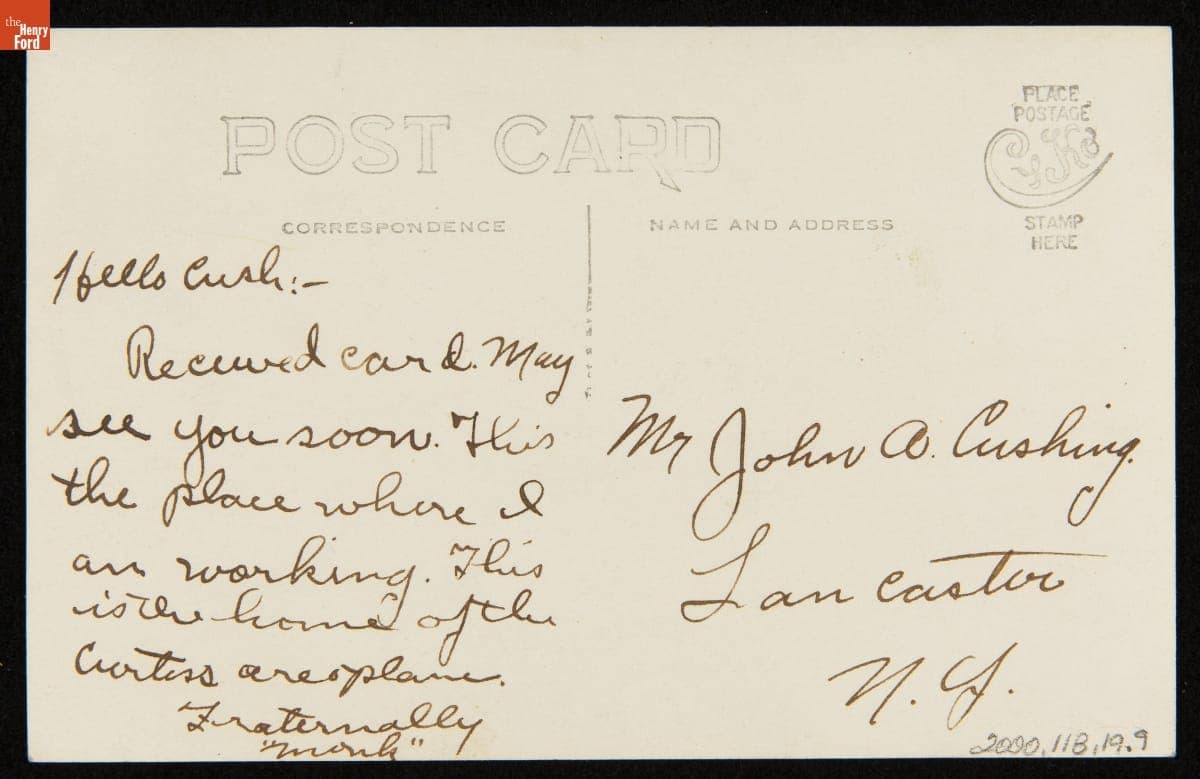 the
Henry
Ford
POST CARD
PLACE
POSTAGE
CYKO
STAMP
HERE
CORRESPONDENCE
NAME AND ADDRESS
Hello Cush:-
Received card. May
see you soon. This
the place where I
am working. This
is the home of the
Curtiss areoplane.
Fraternally
"Monk"
Mr John A. Cushing.
Lancaster
N.Y.
2000.118.19.9